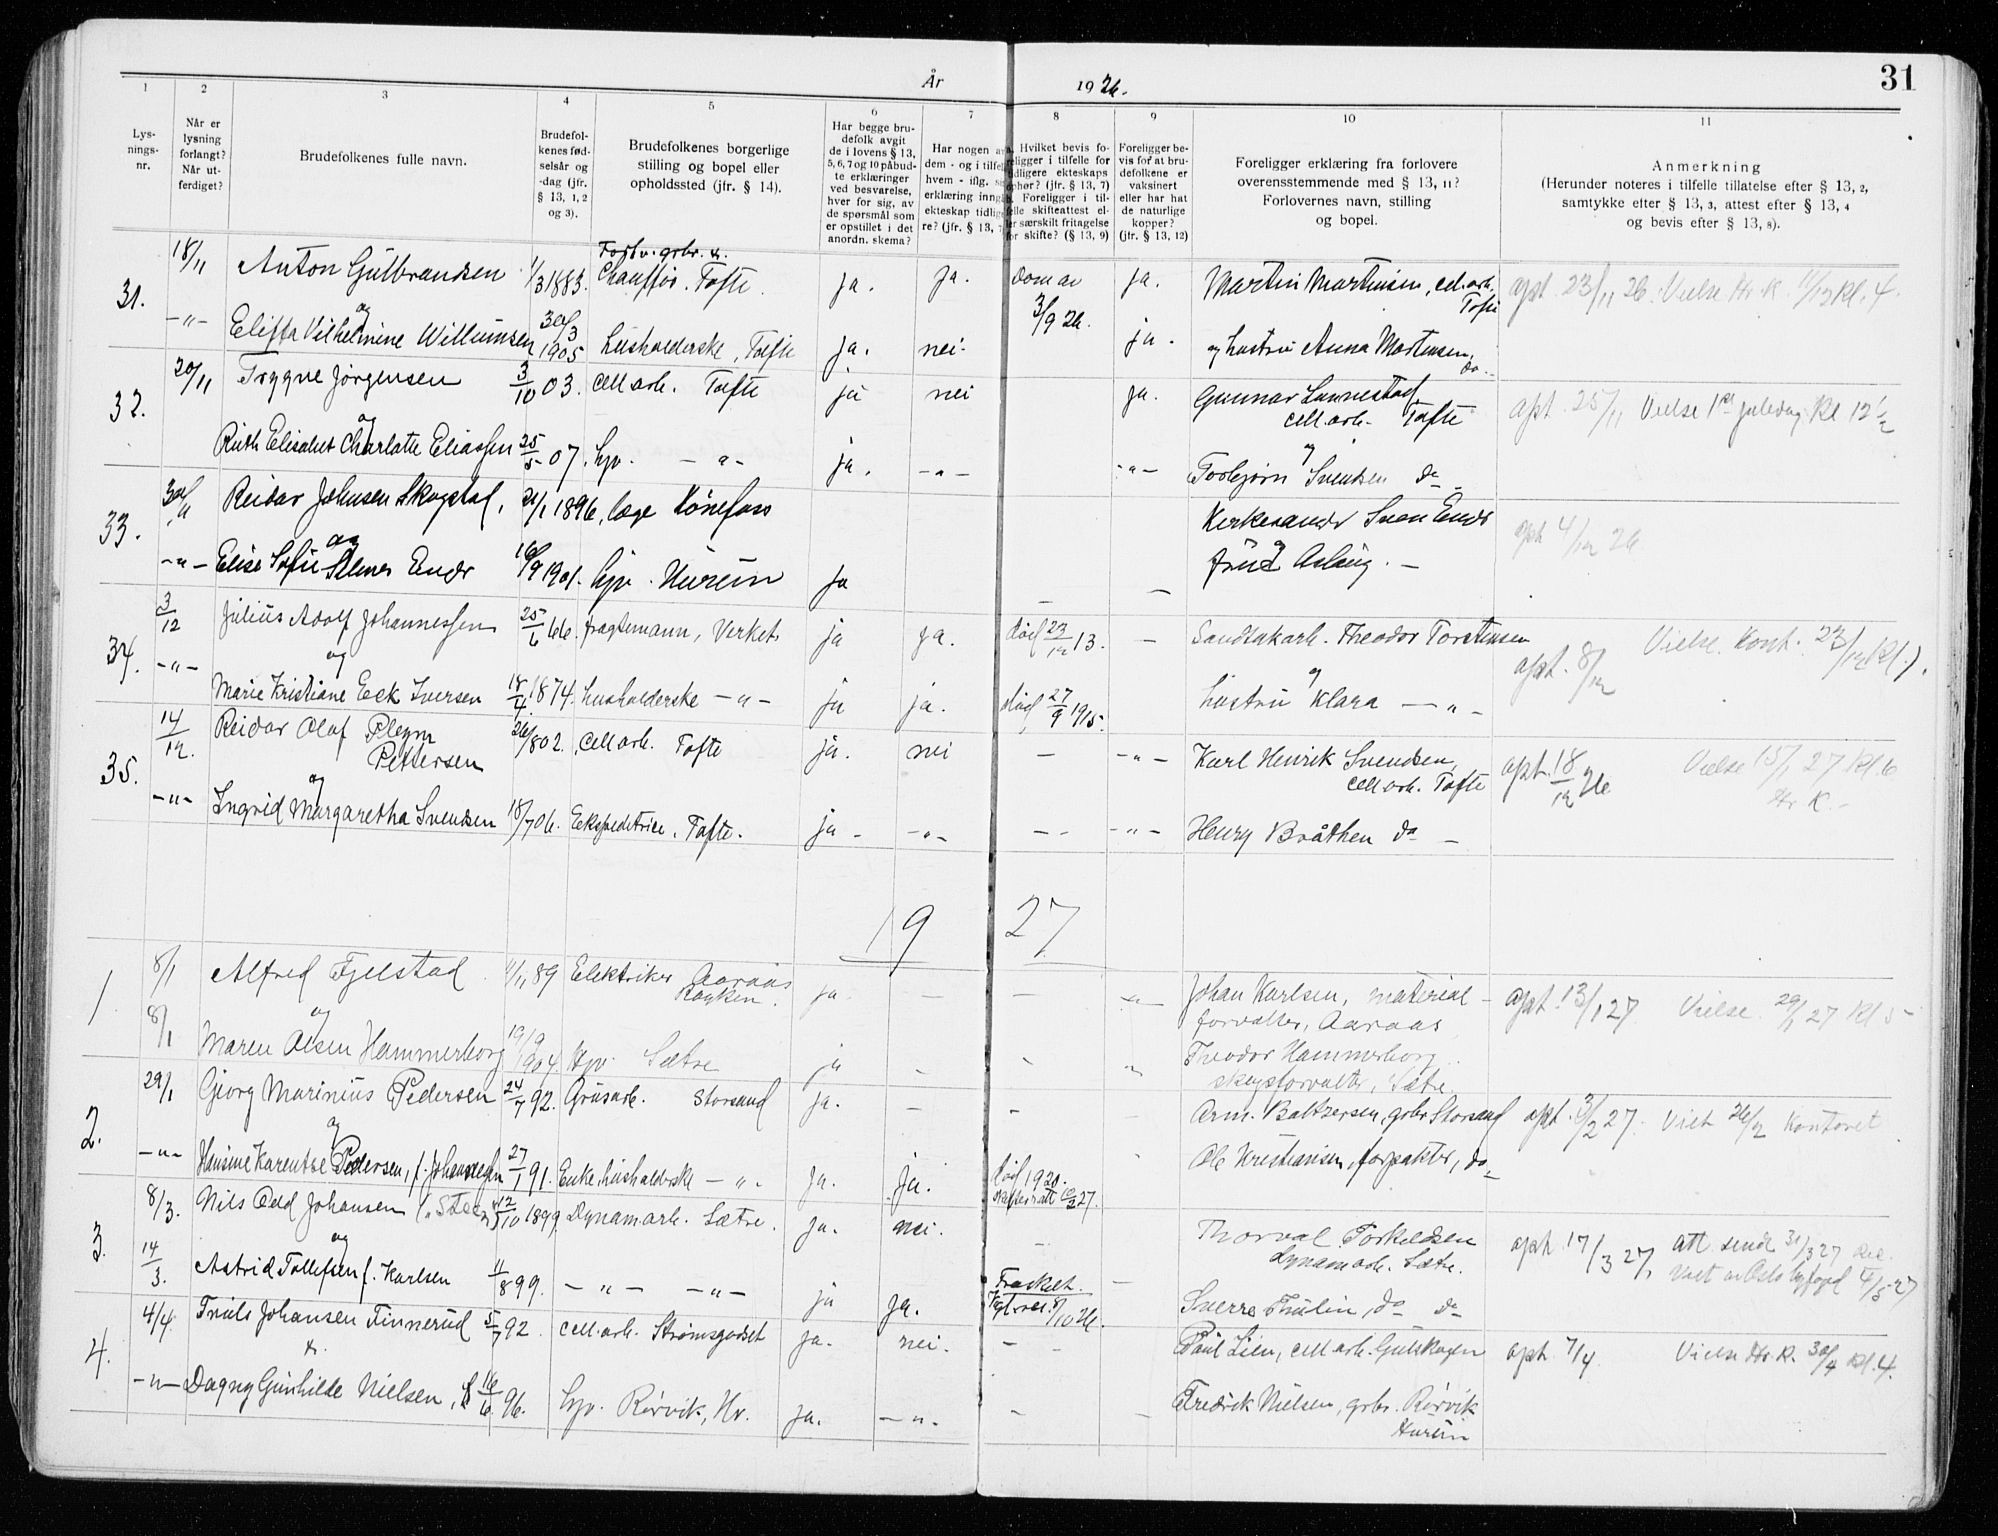 År 1926. 31
1 2 3 4 5 6 7 8 9 10 11
Lysningsnr.
Når er lysning forlangt? Når utferdiget?
Brudefolkenes fulle navn.
Brudefolkenes fødselsår og -dag (jfr. § 13, 1, 2 og 3).
Brudefolkenes borgerlige stilling og bopel eller opholdssted (jfr. § 14).
Har begge brudefolk avgit de i lovens § 13, 5, 6, 7 og 10 påbudte erklæringer ved besvarelse, hver for sig, av de spørsmål som er opstillet i det anordn. skema?
Har nogen av dem - og i tilfelle hvem - iflg. erklæring inngått ekteskap tidligere? (jfr. § 13,
Hvilket bevis foreligger i tilfelle for tidligere ekteskaps ophør? (§ 13, 7) Foreligger i tilfelle skifteattest eller særskilt fritagelse for skifte? (§ 13, 9)
Foreligger bevis for at brudefolkene er vaksinert eller har hat de naturlige kopper? (jfr. § 13, 12)
Foreligger erklæring fra forlovere overensstemmende med § 13, 11? Forlovernes navn, stilling og bopel.
Anmerkning (Herunder noteres i tilfelle tillatelse efter § 13, 2, samtykke efter § 13, 3, attest efter § 13, 4 og bevis efter § 13, 8).
Forhv. grbr. &
31. 18/11 Anton Gulbrandsen 1/3 1883. Chauffør. Tofte ja. ja. Dom av 3/9 26. ja. Martin Martinsen, cell.arb. Tofte opt. 23/11 26. Vielse Hr. K. 11/12 Kl. 4.
og
-"- Vilhelmine Willumsen 30/3 1905 husholderske, Tofte ja. nei. ja. og hustru Anna Martinsen, do.
32. 20/11 Trygve Jørgensen 3/10 03. cell.arb. Tofte ja nei ja. Gunnar Lunnestad, cell.arb. Tofte opt. 25/11 Vielse 1ste juledag Kl 12 1/2
og
Ruth Elisabet Charlotte Eliassen 25/5 07. hjv. -"- ja. -"- -"- og Torbjørn Svendsen do -
33. 30/11 Reidar Johnsen Skogstad, 21/1 1896, læge Hønefoss Kirkesanger Sven Enger opt 4/12 26
og
-"- Elise Sofie Enger 16/9 1901. hjv. Hurum ja - - og frue Aslaug. -
34. 3/12 Julius Adolf Johannessen 25/6 66. fragtemann, Verket ja ja. død 23/12 13. - Sandtakarb. Theodor Torstensen opt. 8/12 Vielse. Kont. 23/12 Kl. ).
og
-"- Marie Kristiane Eek Iversen 18/4 1874. husholderske -"- ja ja. død 27/9 1915. og hustru Klara -"-
35. 14/12 Reidar Olaf Pleym Pettersen 26/8 02. cell.arb. Tofte ja. nei - -"- Karl Henrik Svendsen, cell.arb. Tofte opt. 18/12 26 Vielse 15/1 27 Kl. 6 Hr K. -
og
-"- Ingrid Margaretha Svendsen 18/7 06. Ekspeditrice. Tofte. ja - -"- -- -"- Henry Bråthen do -
19 27
1 8/1 Alfred Fjelstad 11/11 89 Elektriker Aaraas Røyken. ja - - -"- Johan Karlsen, materialforvalter, Aaraas opt. 13/1 27 Vielse. 29/1 27 Kl 5
og
8/1 Maren Olsen Hammerborg 19/9 1904 Hjv. Sætre ja - - " Theodor Hammerborg skogsforvalter, Sætre
2. 29/1 Georg Marinius Pedersen 24/7 92. Grusarb. Storsand ja. - - Arm. Baltzersen, grbr Storsand opt. 3/2 27. Viet 26/2 Kontoret
og
-"- Hansine Karentse Pedersen, f. Johannessen 27/1 91. Enke, husholderske -"- ja. ja. død 1920. skifteratt 10/2 27. Ole Kristiansen, forpakter, do -
3. 8/3. Nils Odd Johansen 12/10 1899 Dynamarb. Sætre. ja. nei. - Thorval Torkildsen Dynamarb. Sætre. opt. 17/3 27, att. sendt 31/3 27 Viet av Oslo byfogd 4/5-27
og
14/3. Astrid Tollefsen f. Karlsen 11/8 99. -"- -"- ja ja. Fraskilt. 8/10 26. - Sverre Thulin, do do
4. 4/4 Truls Johansen Finnerud 5/7 92 cell.arb. Strømsgodset ja. nei. - - Paul Lien, cell.arb. Gulskogen opt. 7/4 Vielse Hr. K. 30/4 kl. 4.
&
-"- Dagny Gunhilde Nielsen, 16/6 96. hjv. Rørvik, Hr. ja. -"- - - Fredrik Nielsen, grbr. Rørvik Hurum